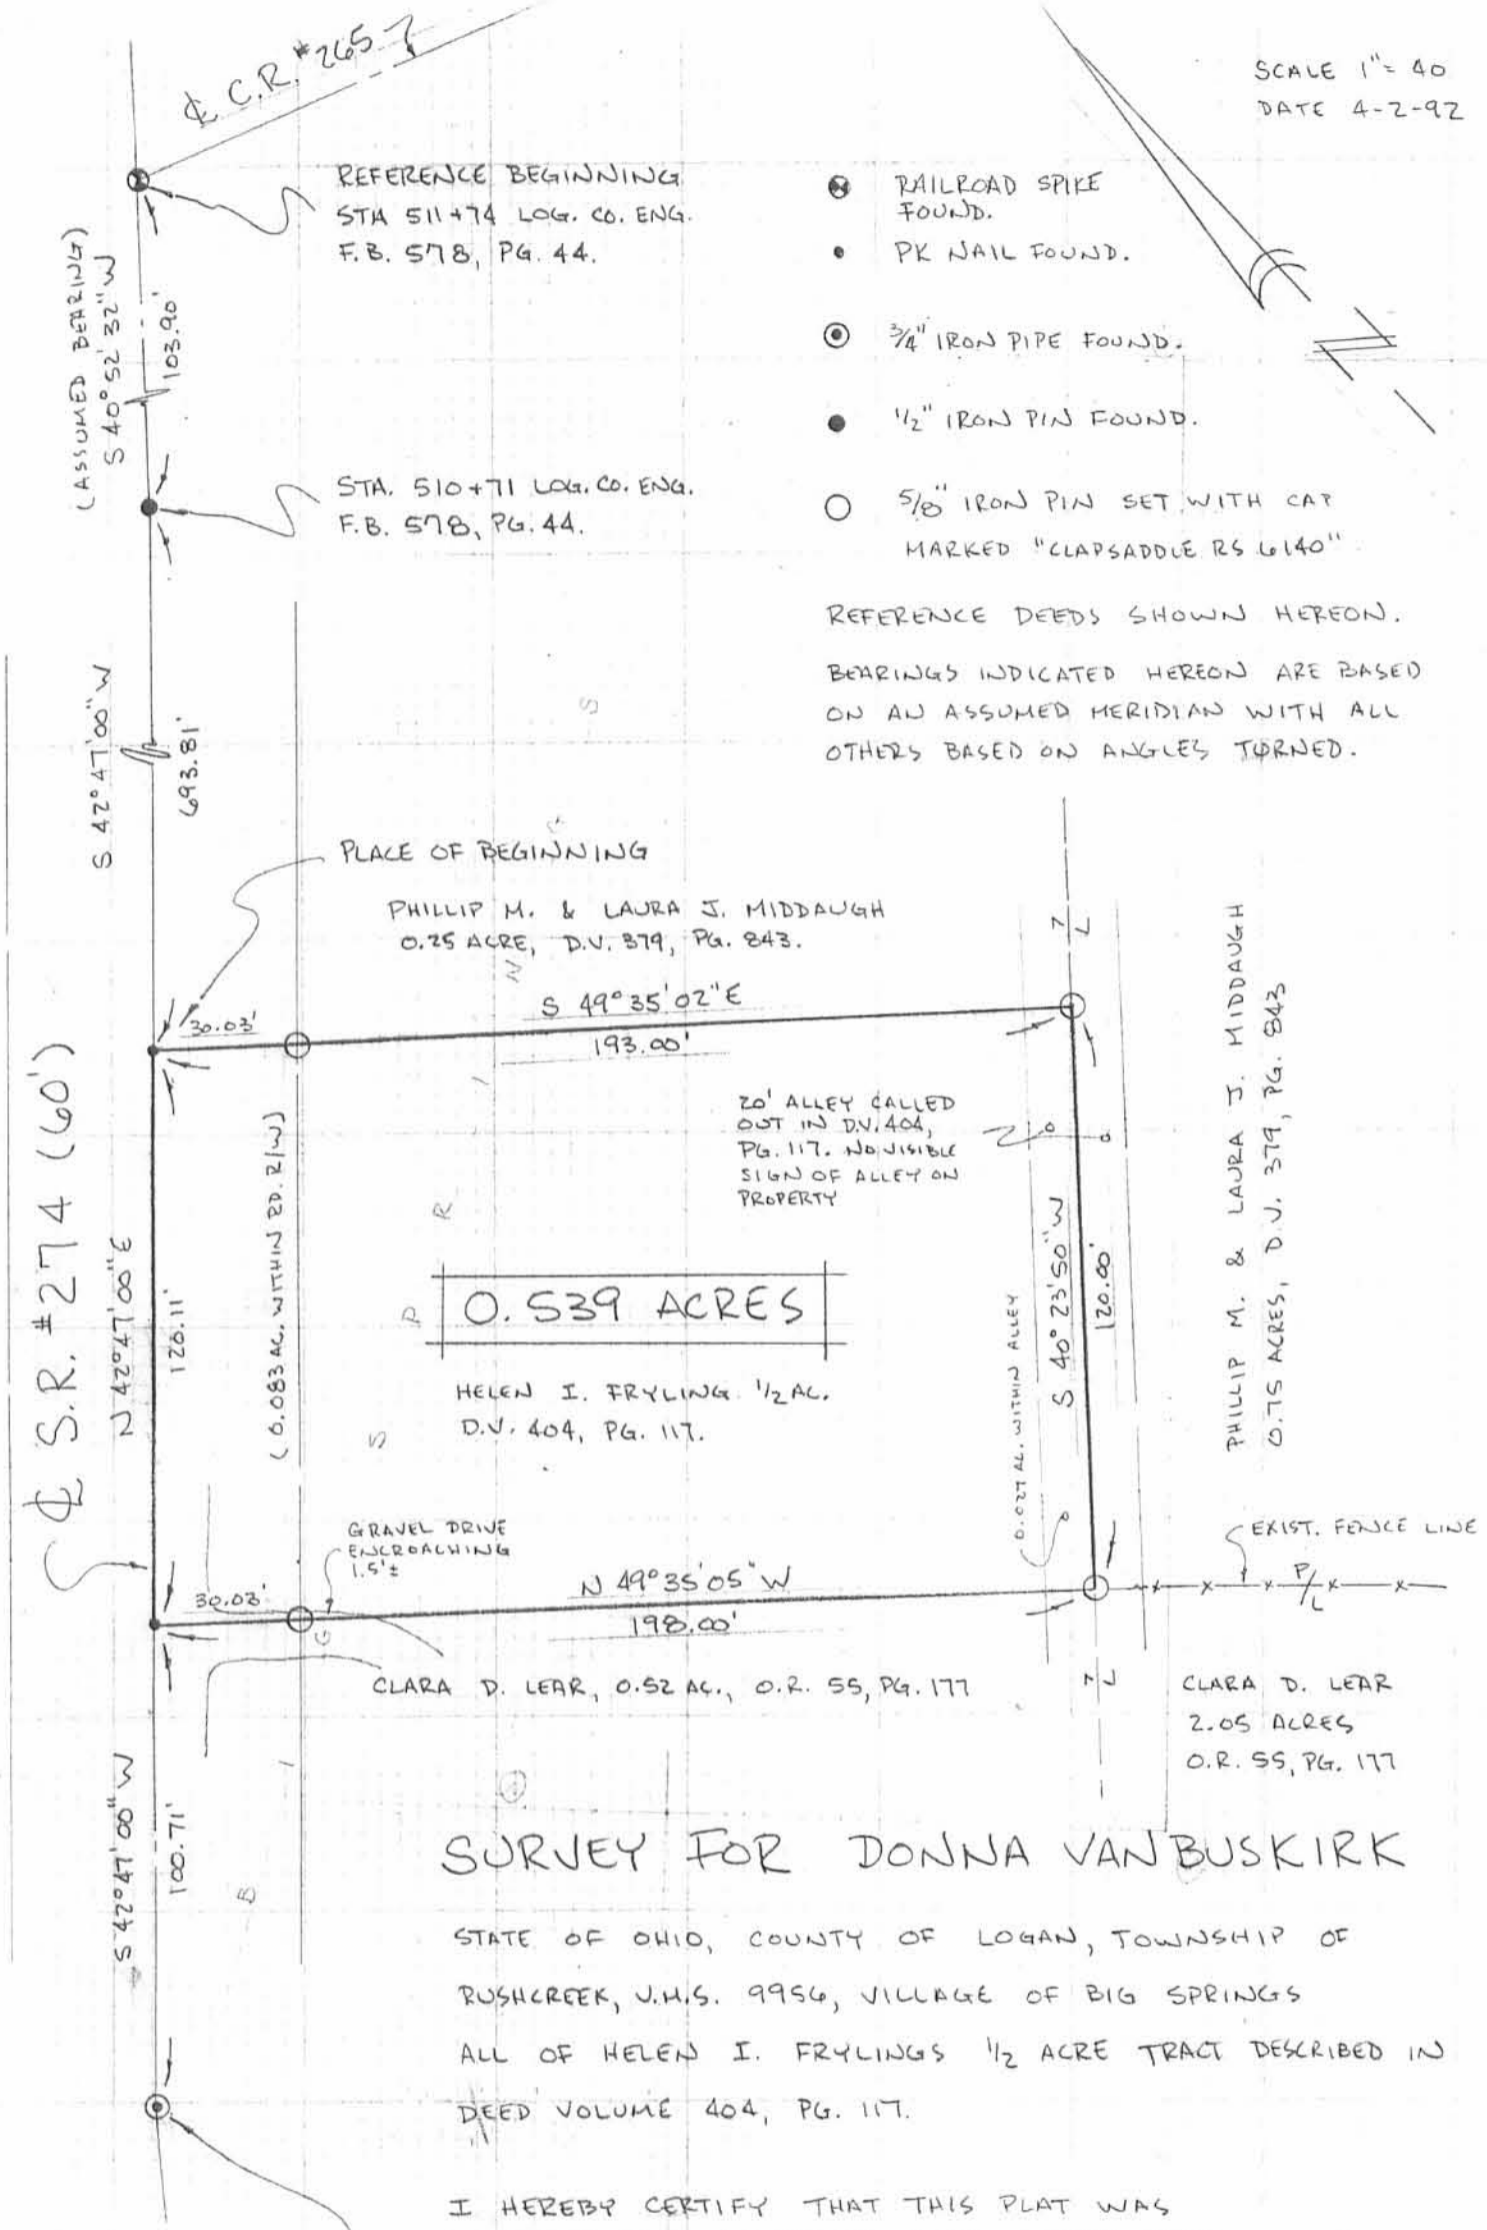 ℄ C.R. #265
SCALE 1"= 40
DATE 4-2-92
REFERENCE BEGINNING
STA 511+74 LOG. CO. ENG.
F.B. 578, PG. 44.
RAILROAD SPIKE
FOUND.
PK NAIL FOUND.
3/4" IRON PIPE FOUND.
1/2" IRON PIN FOUND.
5/8" IRON PIN SET WITH CAP
MARKED "CLAPSADDLE RS 6140"
(ASSUMED BEARING)
S 40° 52' 32" W
103.90'
STA. 510+71 LOG. CO. ENG.
F.B. 578, PG. 44.
REFERENCE DEEDS SHOWN HEREON.
BEARINGS INDICATED HEREON ARE BASED
ON AN ASSUMED MERIDIAN WITH ALL
OTHERS BASED ON ANGLES TURNED.
S 42° 47' 00" W
693.81'
PLACE OF BEGINNING
PHILLIP M. & LAURA J. MIDDAUGH
0.25 ACRE, D.V. 379, PG. 843.
S 49° 35' 02" E
193.00'
30.03'
20' ALLEY CALLED
OUT IN D.V. 404,
PG. 117. NO VISIBLE
SIGN OF ALLEY ON
PROPERTY
PHILLIP M. & LAURA J. MIDDAUGH
0.75 ACRES, D.V. 379, PG. 843
℄ S.R. #274 (60')
N 42° 47' 00" E
120.11'
(0.083 AC. WITHIN RD. R/W)
0.539 ACRES
HELEN I. FRYLING 1/2 AC.
D.V. 404, PG. 117.
0.027 AC. WITHIN ALLEY
S 40° 23' 50" W
120.00'
GRAVEL DRIVE
ENCROACHING
1.5'±
EXIST. FENCE LINE
P/L
30.03'
N 49° 35' 05" W
198.00'
G
CLARA D. LEAR, 0.52 AC., O.R. 55, PG. 177
CLARA D. LEAR
2.05 ACRES
O.R. 55, PG. 177
S 42° 47' 00" W
100.71'
B I G S P R I N G S
SURVEY FOR DONNA VANBUSKIRK
STATE OF OHIO, COUNTY OF LOGAN, TOWNSHIP OF
RUSHCREEK, V.M.S. 9956, VILLAGE OF BIG SPRINGS
ALL OF HELEN I. FRYLINGS 1/2 ACRE TRACT DESCRIBED IN
DEED VOLUME 404, PG. 117.
I HEREBY CERTIFY THAT THIS PLAT WAS